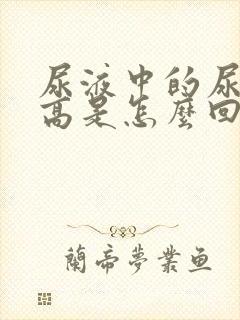 尿液中的尿
高是怎麼回
蘭帝夢業鱼